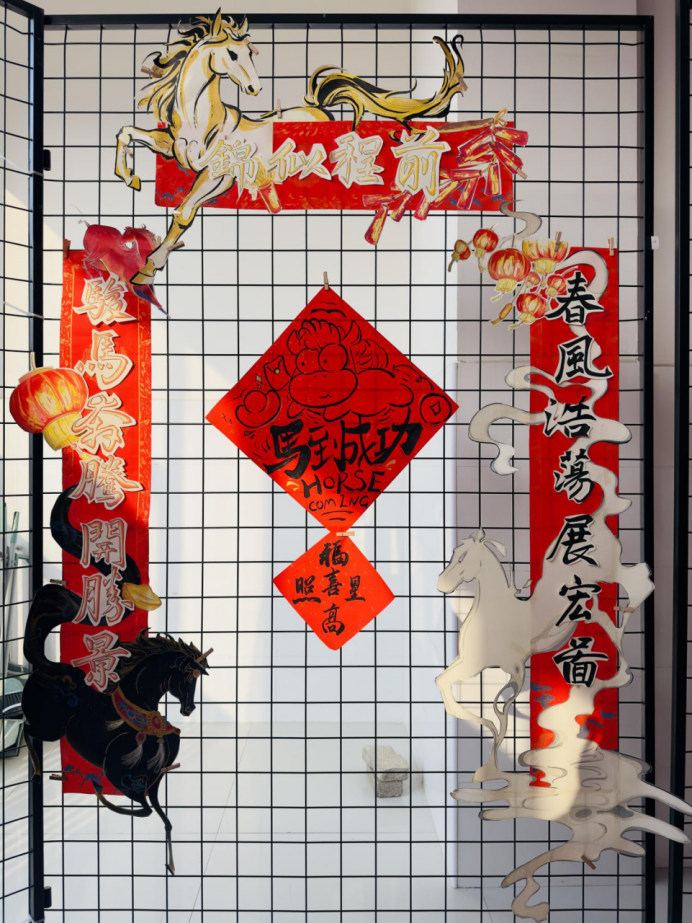 前程似錦
春風浩蕩展宏圖
駿馬奔騰開勝景
馬到成功
HORSE
COMING
福
照喜星
高